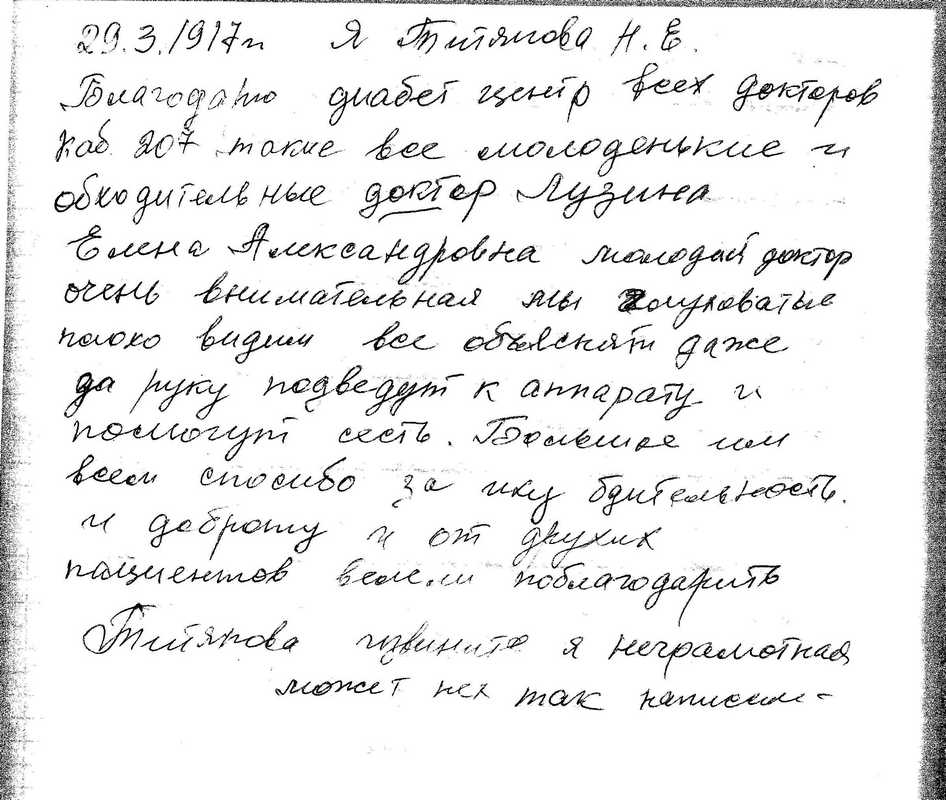 29.3.1917г Я Титякова Н.Е.
Благодарю диабет центр всех докторов
Каб 207 такие все молоденькие и
обходительные доктор Лузина
Елена Александровна молодой доктор
очень внимательная мы глуховатые
плохо видим все объяснят даже
за руку подведут к аппарату и
помогут сесть. Большое им
всем спосибо за ику бдительность.
и доброту и от других
пациентов велели поблагодарить
Титякова извините я неграмотная
может не так написал-